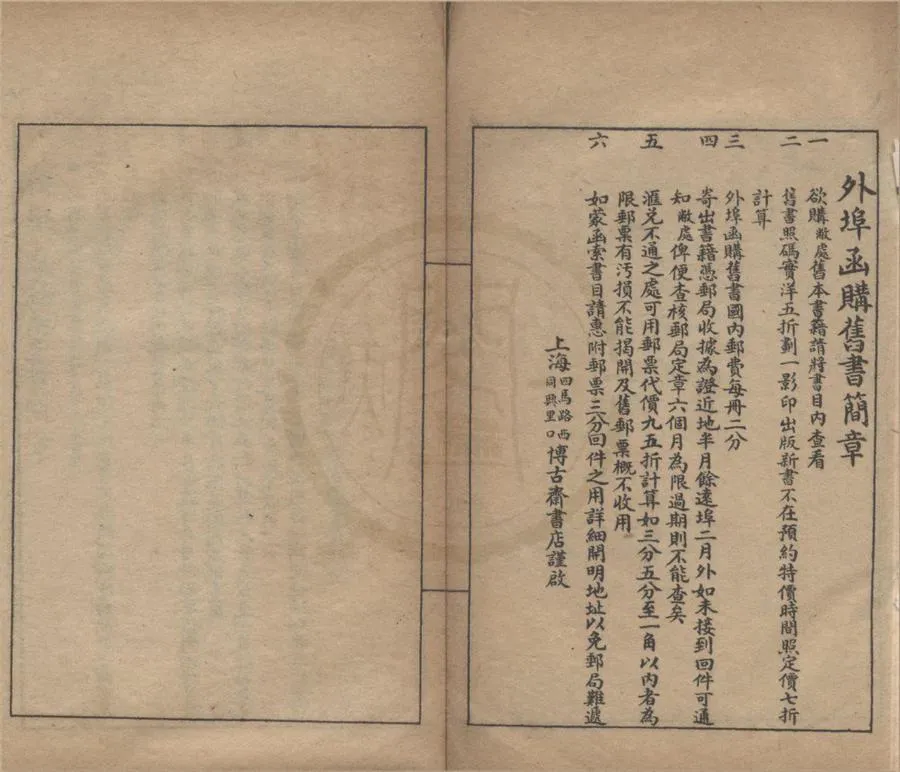 外埠函購舊書簡章
一　欲購敝處舊本書籍請將書目內查看
二　舊書照碼實洋五折劃一影印出版新書不在預約特價時間照定價七折
計算
三　外埠函購舊書國內郵費每冊二分
四　寄出書籍憑郵局收據為證近地半月餘遠埠二月外如未接到回件可通
知敝處俾便查核郵局定章六個月為限過期則不能查矣
五　滙兑不通之處可用郵票代價九五折計算如三分五分至一角以內者為
限郵票有污損不能揭開及舊郵票概不收用
六　如蒙函索書目請惠附郵票三分回件之用詳細開明地址以免郵局難遞
上海四馬路西同興里口博古齋書店謹啟